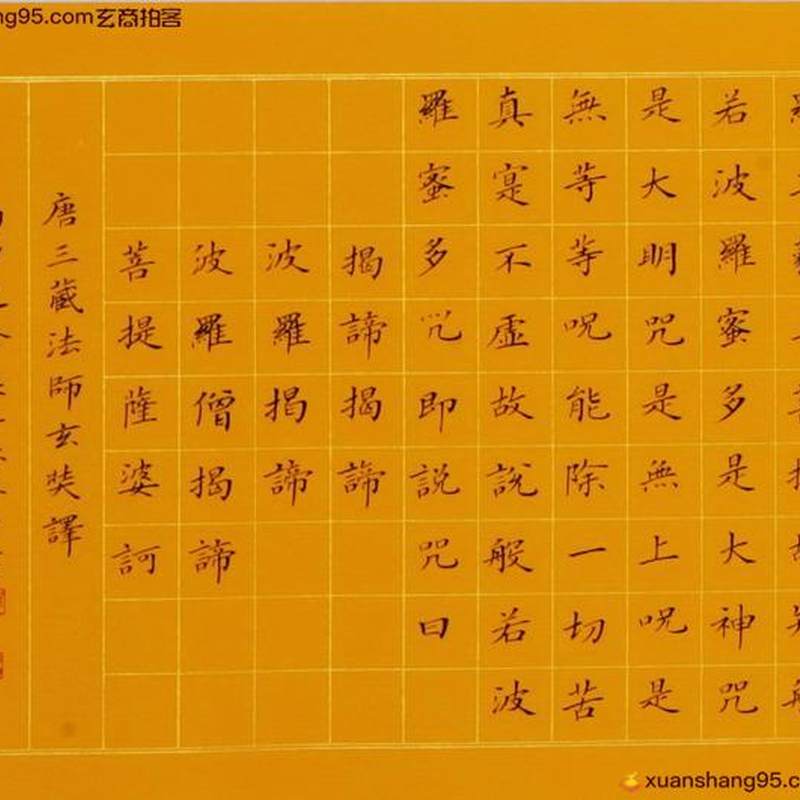 ng95.com玄商拍客
若波羅蜜多是大神咒
是大明咒是無上呪是
無等等呪能除一切苦
真寔不虛故說般若波
羅蜜多咒即說咒曰
揭諦揭諦
波羅揭諦
波羅僧揭諦
菩提薩婆訶
唐三藏法師玄奘譯
xuanshang95.c